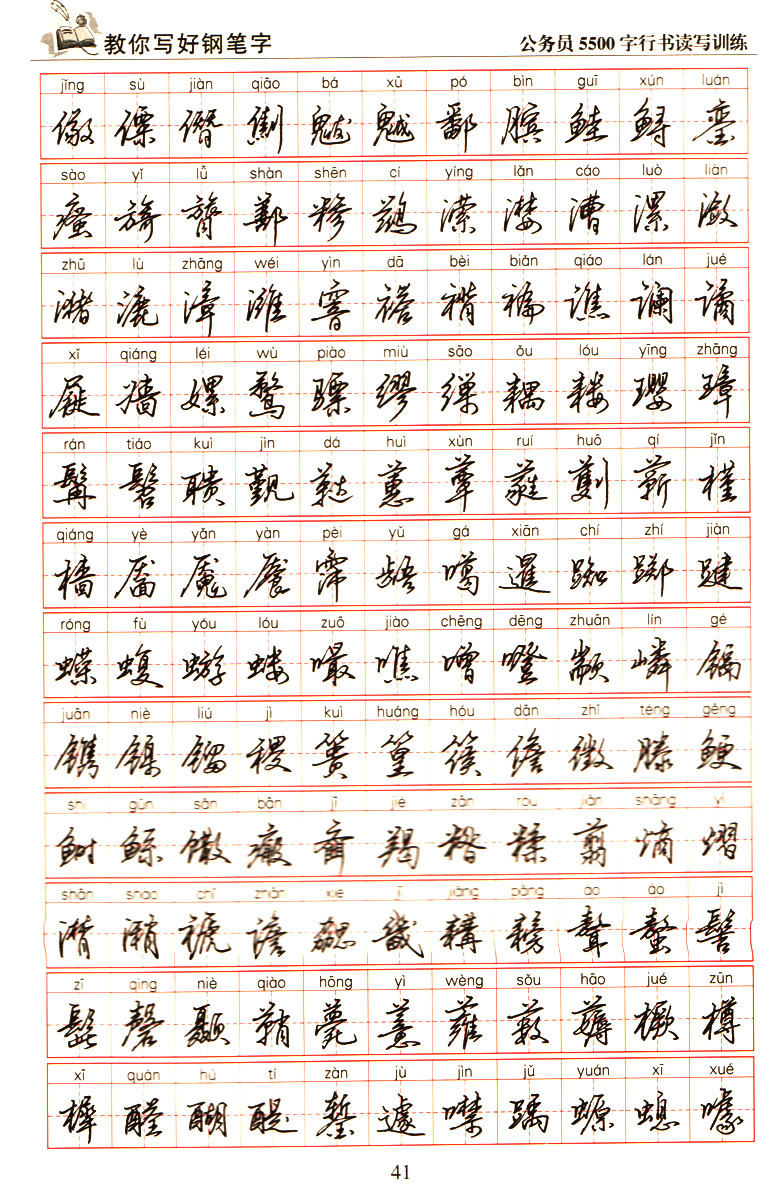 教你写好钢笔字
公务员 5500 字行书读写训练
jǐng sù jiàn qiāo bá xū pó bìn guī xún luán
儆 僳 僭 劁 魃 魆 鄱 膑 鲑 鲟 銮
sào yǐ lǚ shàn shēn cí yíng lǎn cáo luò liàn
瘙 旖 膂 鄯 糁 鹚 潆 漤 漕 漯 潋
zhū lù zhāng wéi yìn dā bèi biǎn qiáo lán jué
潴 漉 漳 潍 窨 褡 褙 褊 谯 谰 谲
xǐ qiáng léi wù piào miù sāo ǒu lóu yīng zhāng
屣 嫱 嫘 鹜 骠 缪 缫 耦 耧 璎 璋
rán tiáo kuì jìn dá huì xùn ruí huō qí jǐn
髯 髫 聩 觐 鞑 蕙 蕈 蕤 劐 蕲 槿
qiáng yè yǎn yàn pèi yǔ gá xiān chí zhí jiàn
樯 靥 魇 餍 霈 龉 噶 暹 踟 踯 踺
róng fù yóu lóu zuō jiào chēng dēng zhuān lín gé
蝾 蝮 蝣 蝼 嘬 噍 噌 噔 颛 嶙 镉
juān niè liú jì kuì huáng hóu dān zhǐ téng gěng
镌 镍 镏 稷 篑 篁 篌 儋 徵 滕 鲠
shí gǔn sǎn bān jī jié zān róu jiǎn shāng yì
鲥 鲧 馓 瘢 齑 羯 糌 糅 翦 熵 熠
shān shào chǐ zhān xié jī jiǎng pǎng áo áo jì
潸 潲 褫 谵 勰 畿 耩 耪 聱 螯 髻
zī qìng niè qiào hōng yì wèng sǒu hāo jué zūn
髭 磬 颞 鞘 薨 薏 蕹 薮 薅 橛 樽
xī quán hú tí zàn jù jìn jǔ yuán xī xué
樨 醛 醐 醍 錾 遽 噤 踽 螈 螅 噱
41